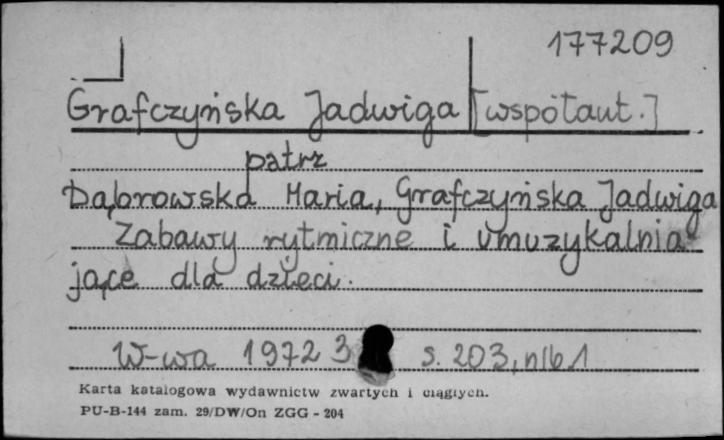 177209
Grafczyńska Jadwiga [współaut.]
patrz
Dąbrowska Maria, Grafczyńska Jadwiga
Zabawy rytmiczne i umuzykalnia-
jące dla dzieci.
W-wa 1972 s. 203, nlb 1
Karta katalogowa wydawnictw zwartych i ciągłych.
PU-B-144 zam. 29/DW/On ZGG - 204